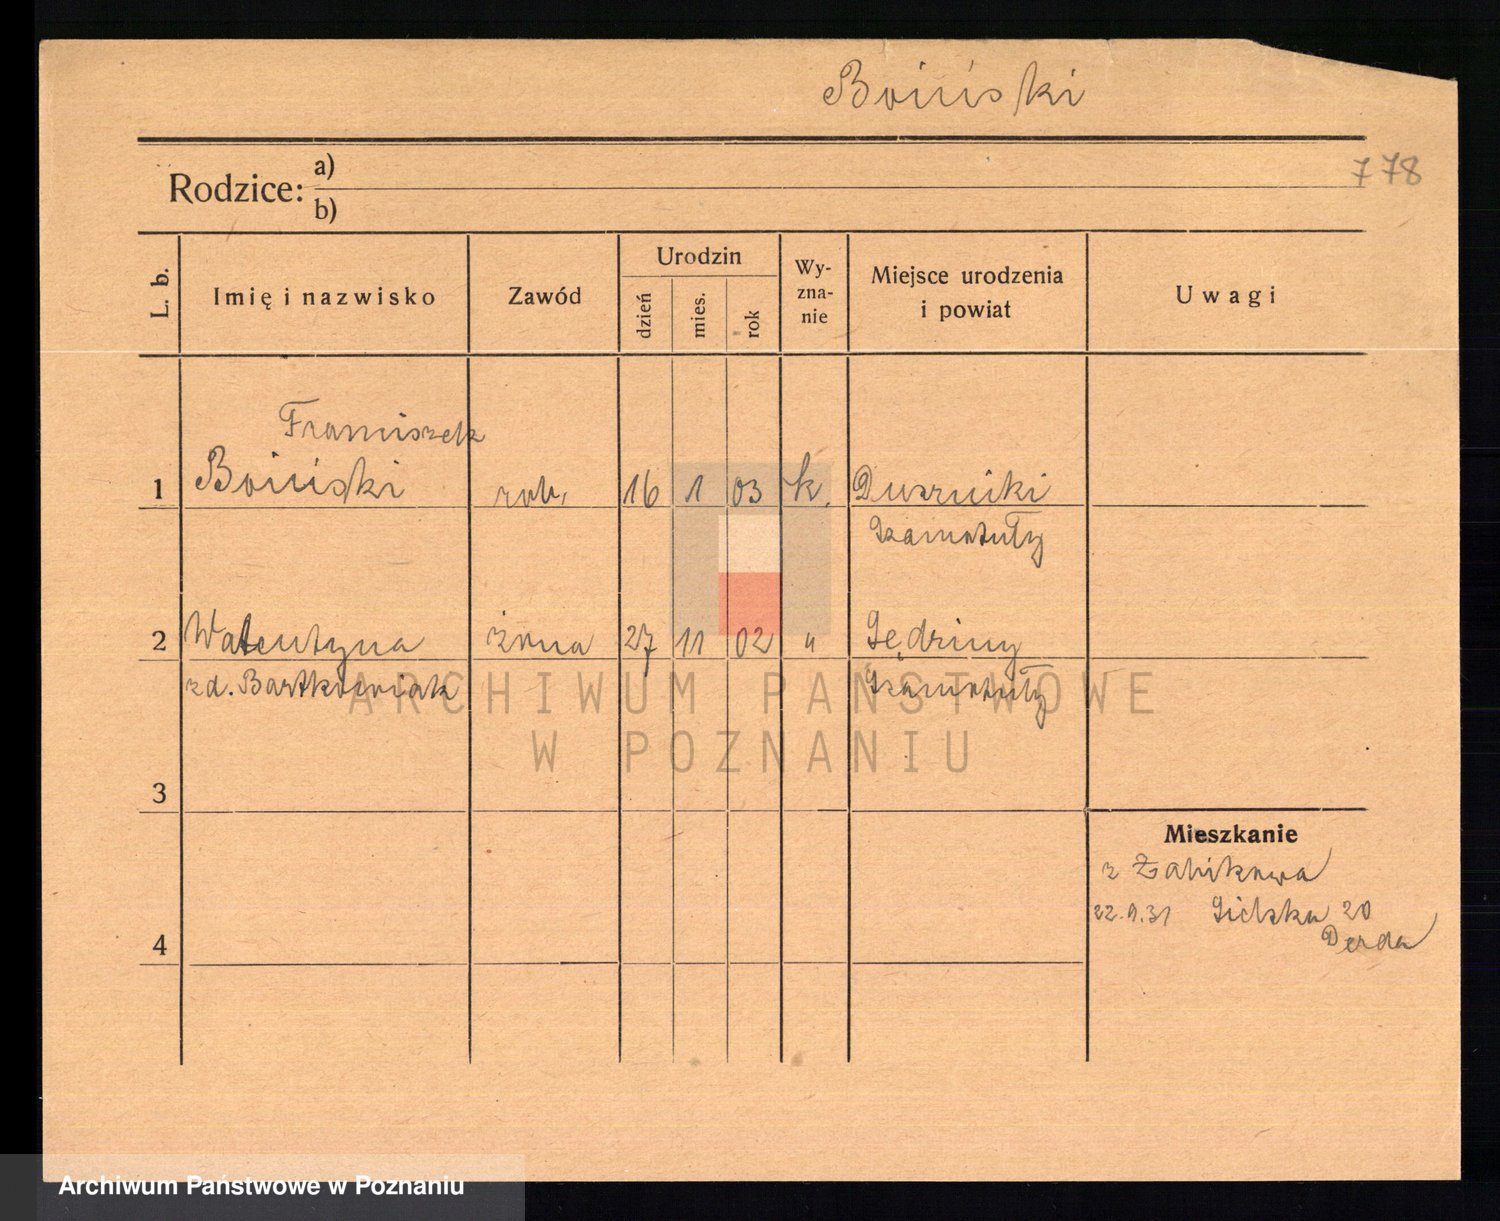 Boiński
778
Rodzice: a)
b)
L. b.
Imię i nazwisko
Zawód
Urodzin
dzień
mies.
rok
Wy-
zna-
nie
Miejsce urodzenia
i powiat
Uwagi
Franciszek
1 Boiński rob. 16 1 03 k. Duszniki
Szamotuły
2 Walentyna żona 27 11 02 "
zd. Bartkowiak Szamotuły
ARCHIWUM PAŃSTWOWE
W POZNANIU
3
Mieszkanie
z Żabikowa
20
Derda
4
Archiwum Państwowe w Poznaniu